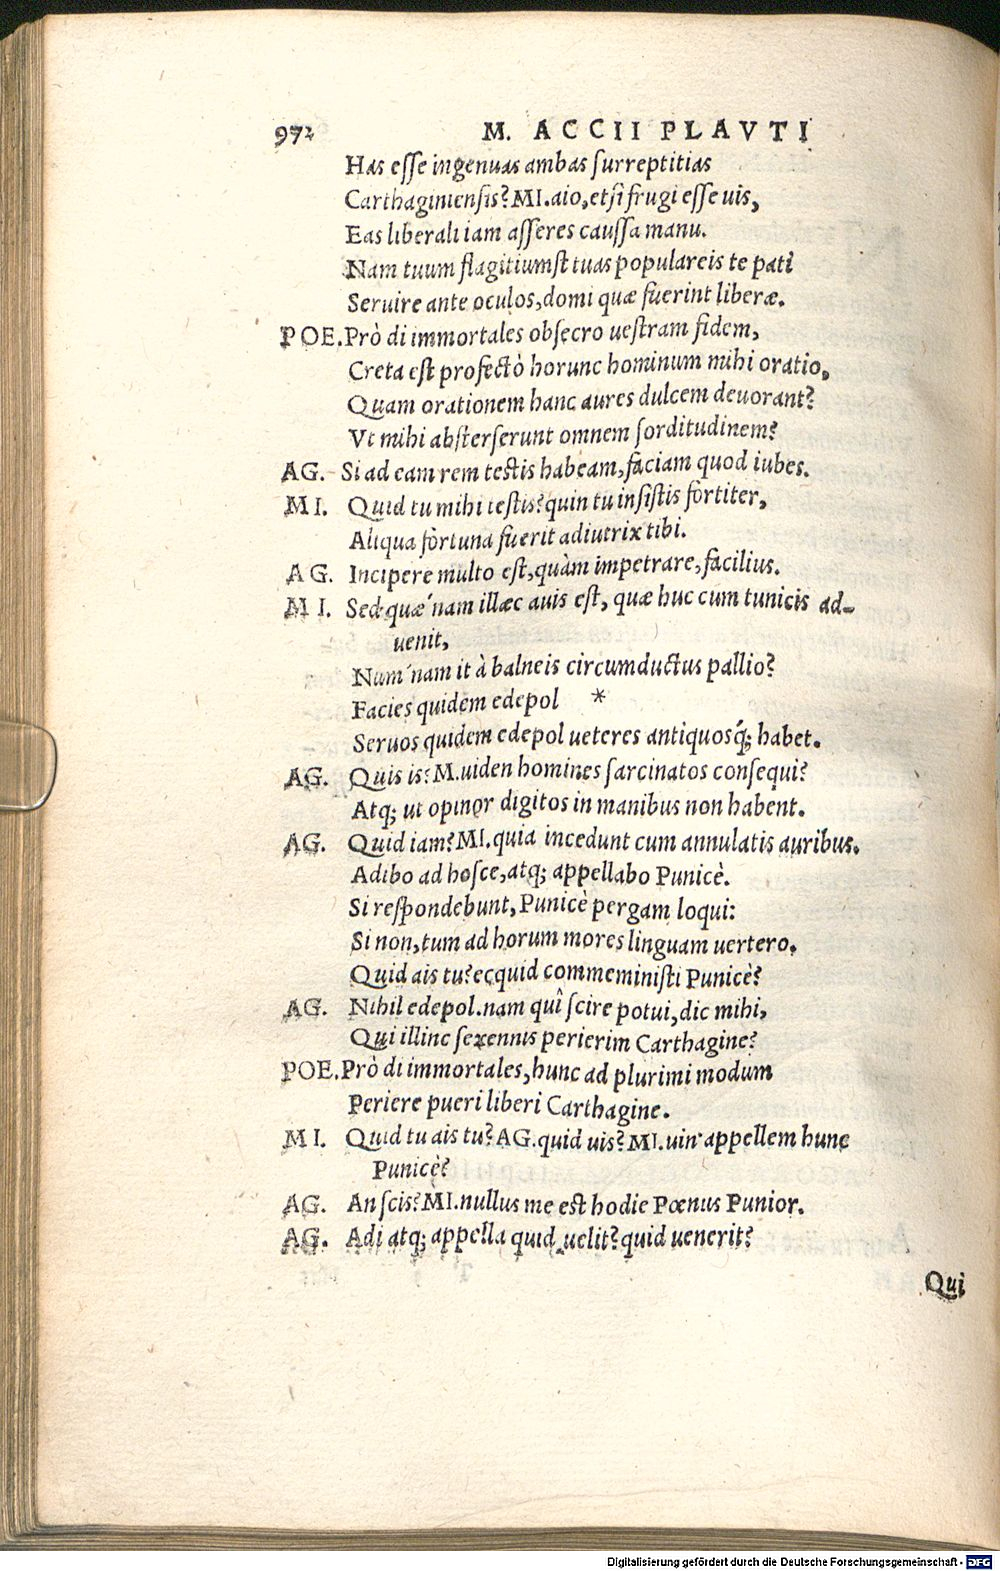 972 M. ACCII PLAVTI
Has esse ingenuas ambas surreptitias
Carthaginiensis? MI. aio, et si frugi esse uis,
Eas liberali iam asseres caussa manu.
Nam tuum flagitiumst tuas populareis te pati
Seruire ante oculos, domi quæ fuerint liberæ.
POE. Prò di immortales obsecro uestram fidem,
Creta est profectò horunc hominum mihi oratio,
Quam orationem hanc aures dulcem deuorant?
Vt mihi absterserunt omnem sorditudinem?
AG. Si ad eam rem testis habeam, faciam quod iubes.
MI. Quid tu mihi testis? quin tu insistis fortiter,
Aliqua fortuna fuerit adiutrix tibi.
AG. Incipere multo est, quàm impetrare, facilius.
MI. Sed quæ´nam illæc auis est, quæ huc cum tunicis ad-
uenit,
Num´nam it à balneis circumductus pallio?
Facies quidem edepol *
Seruos quidem edepol ueteres antiquosq́; habet.
AG. Quis is? M. uiden homines sarcinatos consequi?
Atq; ut opinor digitos in manibus non habent.
AG. Quid iam? MI. quia incedunt cum annulatis auribus.
Adibo ad hosce, atq; appellabo Punicè.
Si respondebunt, Punicè pergam loqui:
Si non, tum ad horum mores linguam uertero.
Quid ais tu? ecquid commeministi Punicè?
AG. Nihil edepol. nam quî scire potui, dic mihi,
Qui illinc sexennis perierim Carthagine?
POE. Prò di immortales, hunc ad plurimi modum
Periere pueri liberi Carthagine.
MI. Quid tu ais tu? AG. quid uis? MI. uin' appellem hunc
Punicè?
AG. An scis? MI. nullus me est hodie Pœnus Punior.
AG. Adi atq; appella quid uelit? quid uenerit?
Qui
Digitalisierung gefördert durch die Deutsche Forschungsgemeinschaft - DFG